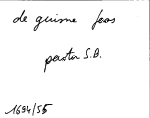 de guisme feos
pastor S.B.
1694/55